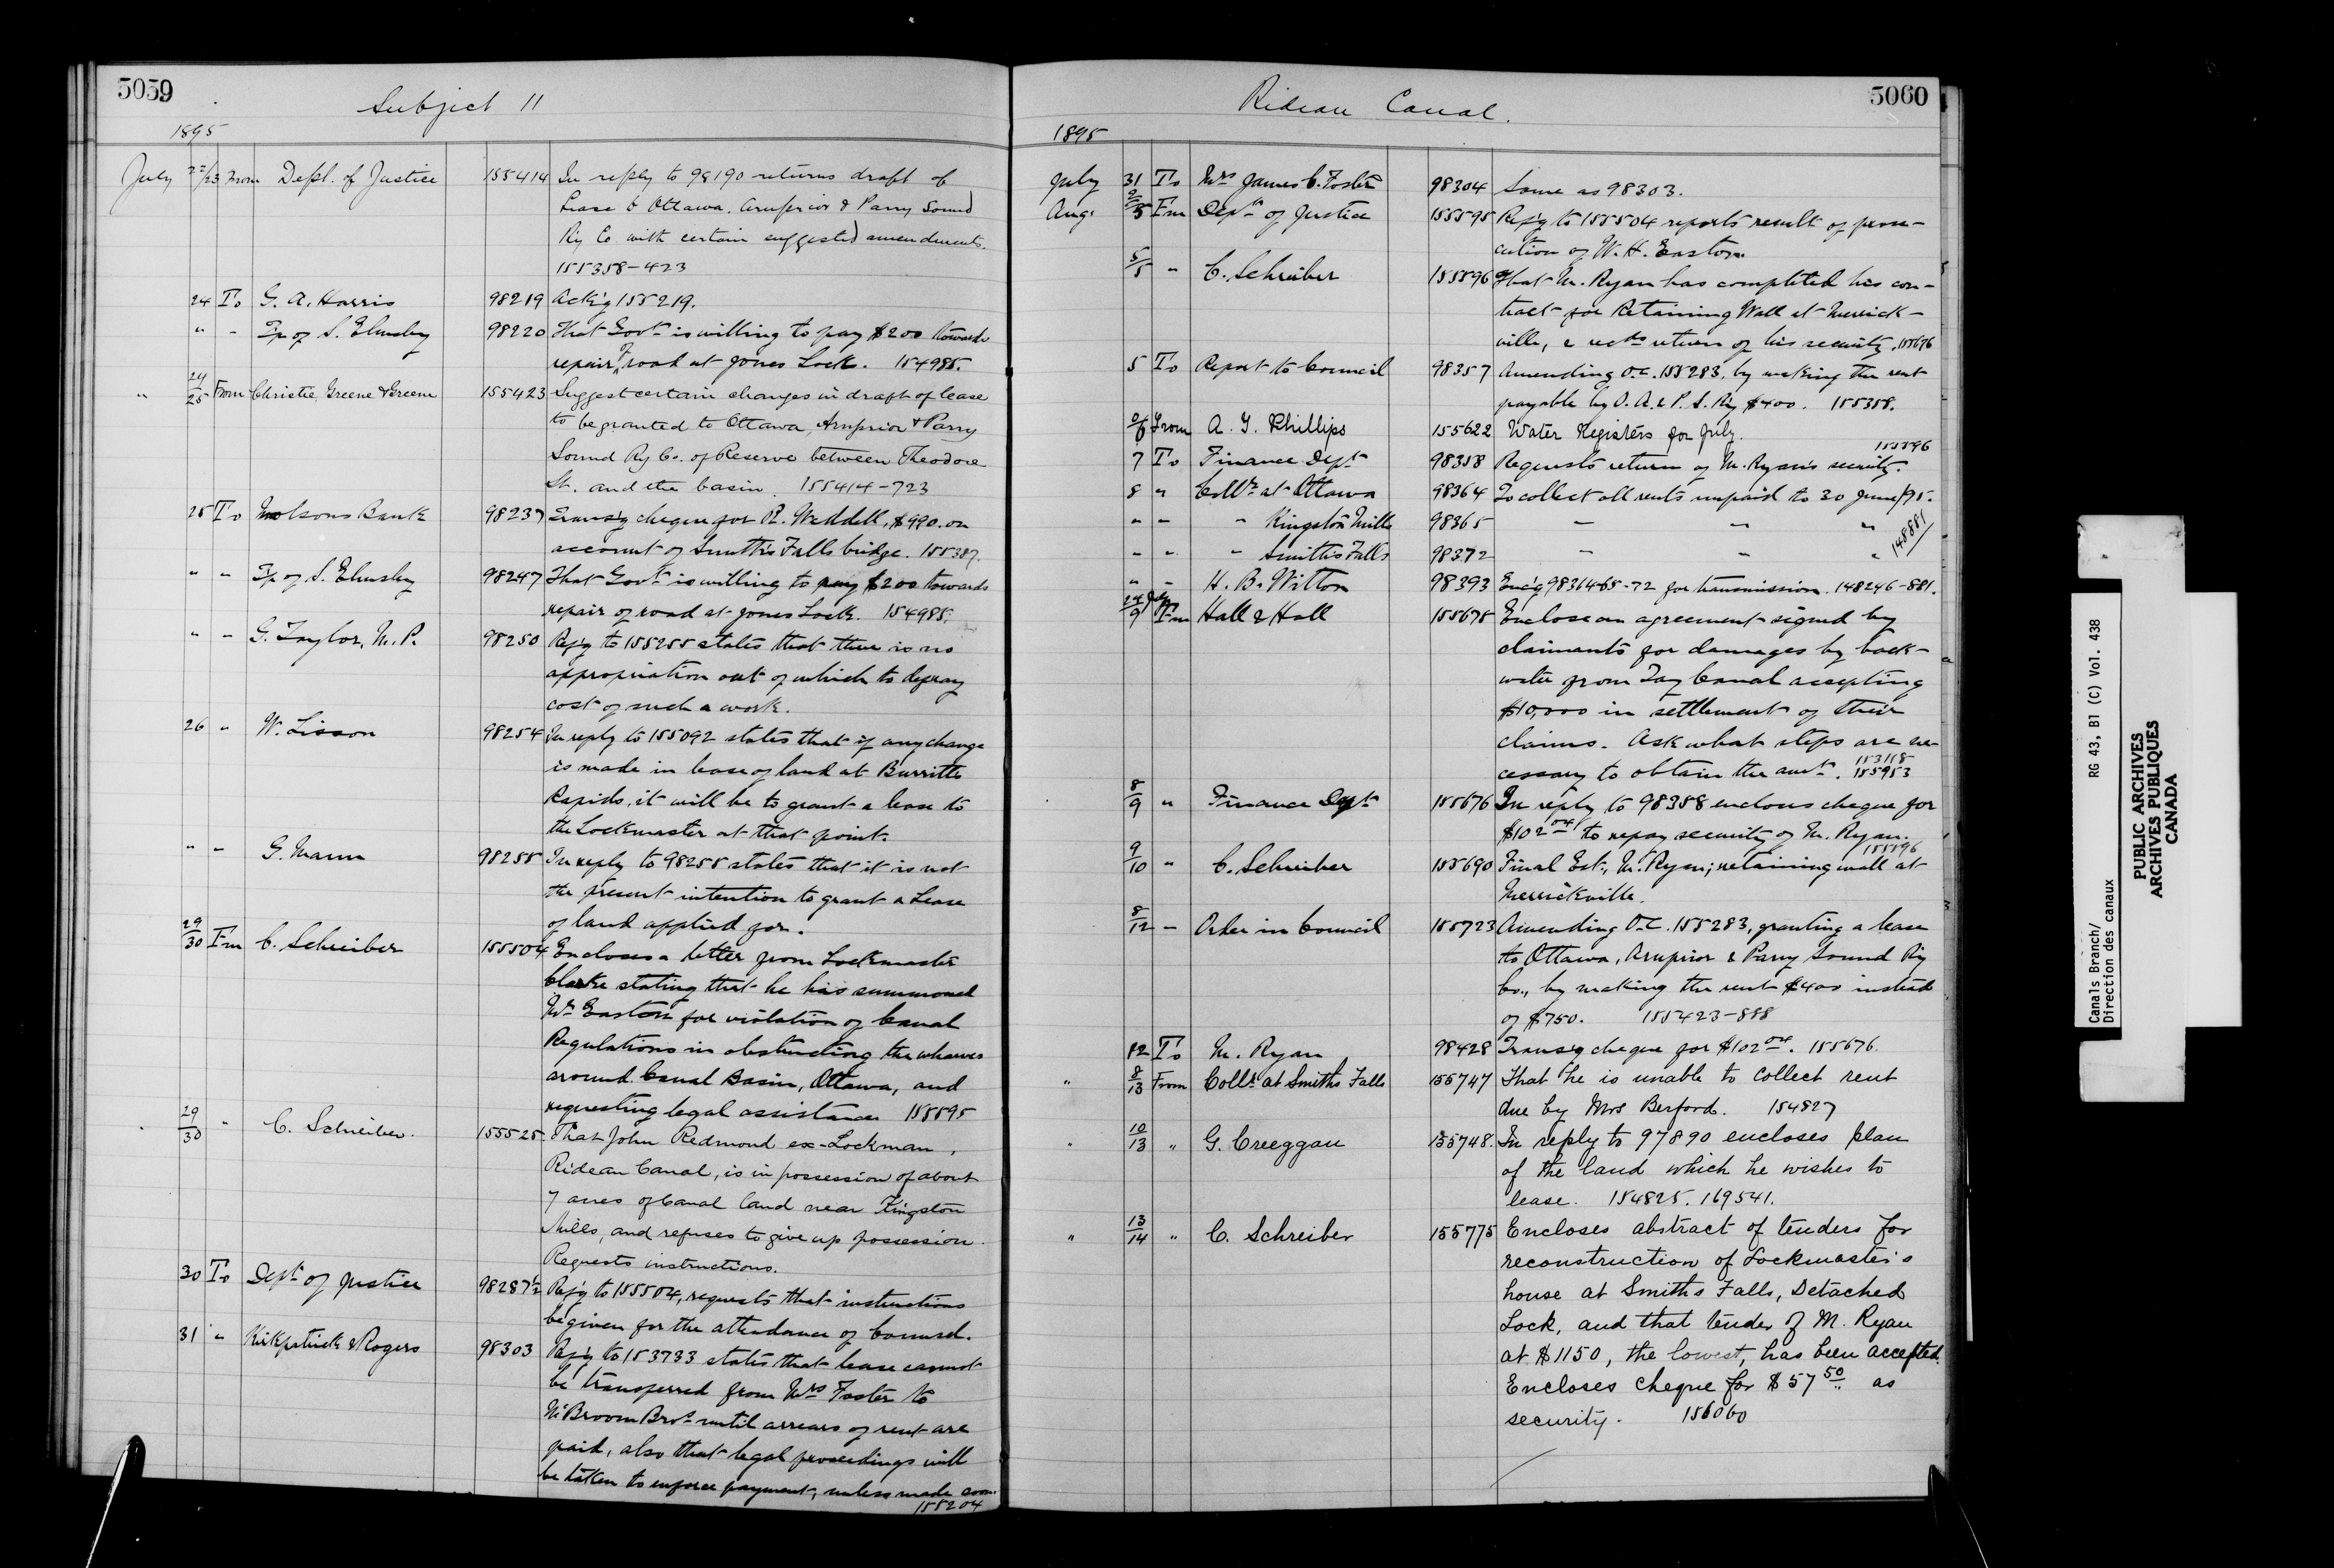 5059
Subject 11
1895
July 22/23 From Dept. of Justice 155414 In reply to 98190 returns draft of
Lease to Ottawa, Arnprior & Parry Sound
Ry Co. with certain suggested amendments.
155358-423
24 To G. A. Harris 98219 Ack'g 155219.
" " Tp of S. Elmsley 98220 That Govt is willing to pay $200 towards
repair of road at Jones Lock. 154985.
" 24/25 From Christie, Greene & Greene 155423 Suggest certain changes in draft of lease
to be granted to Ottawa, Arnprior & Parry
Sound Ry Co. of Reserve between Theodore
St. and the basin. 155414-723
25 To Molsons Bank 98237 Transg cheque for R. Weddell, $990. on
account of Smiths Falls bridge. 155387.
" " Tp of S. Elmsley 98247 That Govt is willing to pay $200 towards
repair of road at Jones Lock. 154985.
" " G. Taylor, M.P. 98250 Ref'g to 155255 states that there is no
appropriation out of which to defray
cost of such a work.
26 " W. Lisson 98254 In reply to 155092 states that if any change
is made in lease of land at Burritts
Rapids, it will be to grant a lease to
the Lockmaster at that point.
" " G. Mann 98255 In reply to 98255 states that it is not
the present intention to grant a Lease
of land applied for.
29/30 Fm C. Schreiber 155504 Encloses a letter from Lockmaster
Clarke stating that he has summoned
Mr Easton for violation of Canal
Regulations in obstructing the wharves
around Canal Basin, Ottawa, and
requesting legal assistance 155595
29/30 " C. Schreiber. 155525 That John Redmond ex-Lockman,
Rideau Canal, is in possession of about
7 acres of Canal land near Kingston
Mills, and refuses to give up possession.
Requests instructions.
30 To Dept of Justice 98287½ Ref'g to 155504, requests that instructions
be given for the attendance of Counsel.
31 " Kirkpatrick & Rogers 98303 Ref'g to 153733 states that lease cannot
be transferred from Mrs Foster to
McBroom Bros until arrears of rent are
paid, also that legal proceedings will
be taken to enforce payment, unless made soon.
155204
Rideau Canal.
5060
1895
July 31 To Mrs James C. Foster 98304 Same as 98303.
Aug. 2/5 Fm Dept of Justice 155595 Ref'g to 155504 reports result of prose-
cution of W. H. Easton.
5/5 " C. Schreiber 155596 That M. Ryan has completed his con-
tract for Retaining Wall at Merrick-
ville, & recds return of his security. 155676
5 To Report to Council 98357 Amending O.C. 155283, by making the rent
payable by O. A. & P. S. Ry $400. 155358.
5/6 From A. T. Phillips 155622 Water Registers for July.
7 To Finance Dept 98358 Requests return of M. Ryan's security. 155596
8 " Collr at Ottawa 98364 To collect all rents unpaid to 30 June/95.
" " " Kingston Mills 98365 " " "
" " " Smiths Falls 98372 " " " 148881
" " H. B. Witton 98393 Encg 98364-65-72 for transmission. 148246-881.
24 July/9 Fm Hall & Hall 155675 Enclose an agreement signed by
claimants for damages by back-
water from Tay Canal accepting
$10,000 in settlement of their
claims. Ask what steps are ne-
cessary to obtain the amt. 153118 155953
8/9 " Finance Dept 155676 In reply to 98358 encloses cheque for
$102.04 to repay security of M. Ryan.
155596
9/10 " C. Schreiber 155690 Final Est., M. Ryan; retaining wall at
Merrickville.
8/12 " Order in Council 155723 Amending O.C. 155283, granting a lease
to Ottawa, Arnprior & Parry Sound Ry
Co., by making the rent $400 instead
of $750. 155423-888
12 To M. Ryan 98428 Transg cheque for $102.04. 155676.
" 8/13 From Collr at Smiths Falls 155747 That he is unable to collect rent
due by Mrs Berford. 154827
" 10/13 " G. Creeggan 155748. In reply to 97890 encloses plan
of the land which he wishes to
lease. 154825. 169541.
" 13/14 " C. Schreiber 155775 Encloses abstract of tenders for
reconstruction of Lockmaster's
house at Smiths Falls, Detached
Lock, and that tender of M. Ryan
at $1150, the lowest, has been accepted.
Encloses cheque for $57.50 as
security. 156060
Canals Branch/ RG 43, B1 (C) Vol. 438
Direction des canaux
PUBLIC ARCHIVES
ARCHIVES PUBLIQUES
CANADA